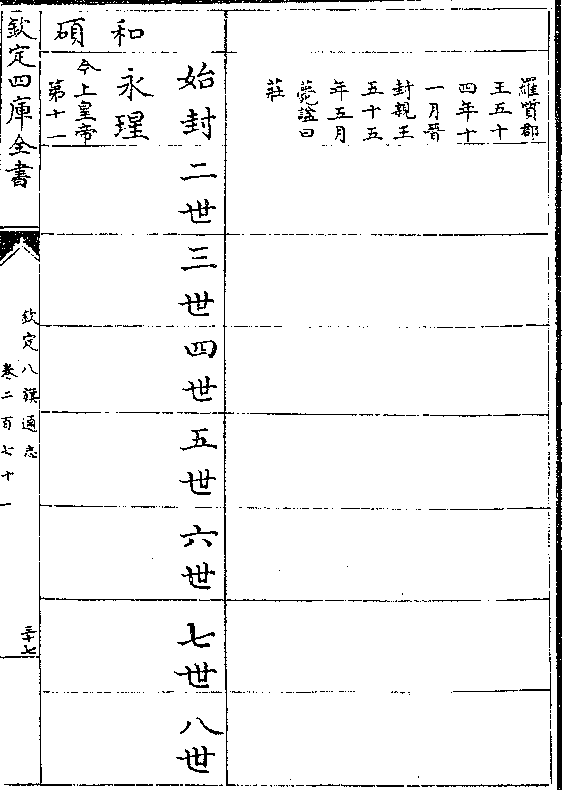 羅質郡
王五十
四年十
一月晉
封親王
五十五
年五月
薨諡曰
莊
始封
二世
三世
四世
五世
六世
七世
八世
和碩
永瑆
今上皇帝
第十一
欽定四庫全書
欽定八旗通志
卷二百七十一
三十七